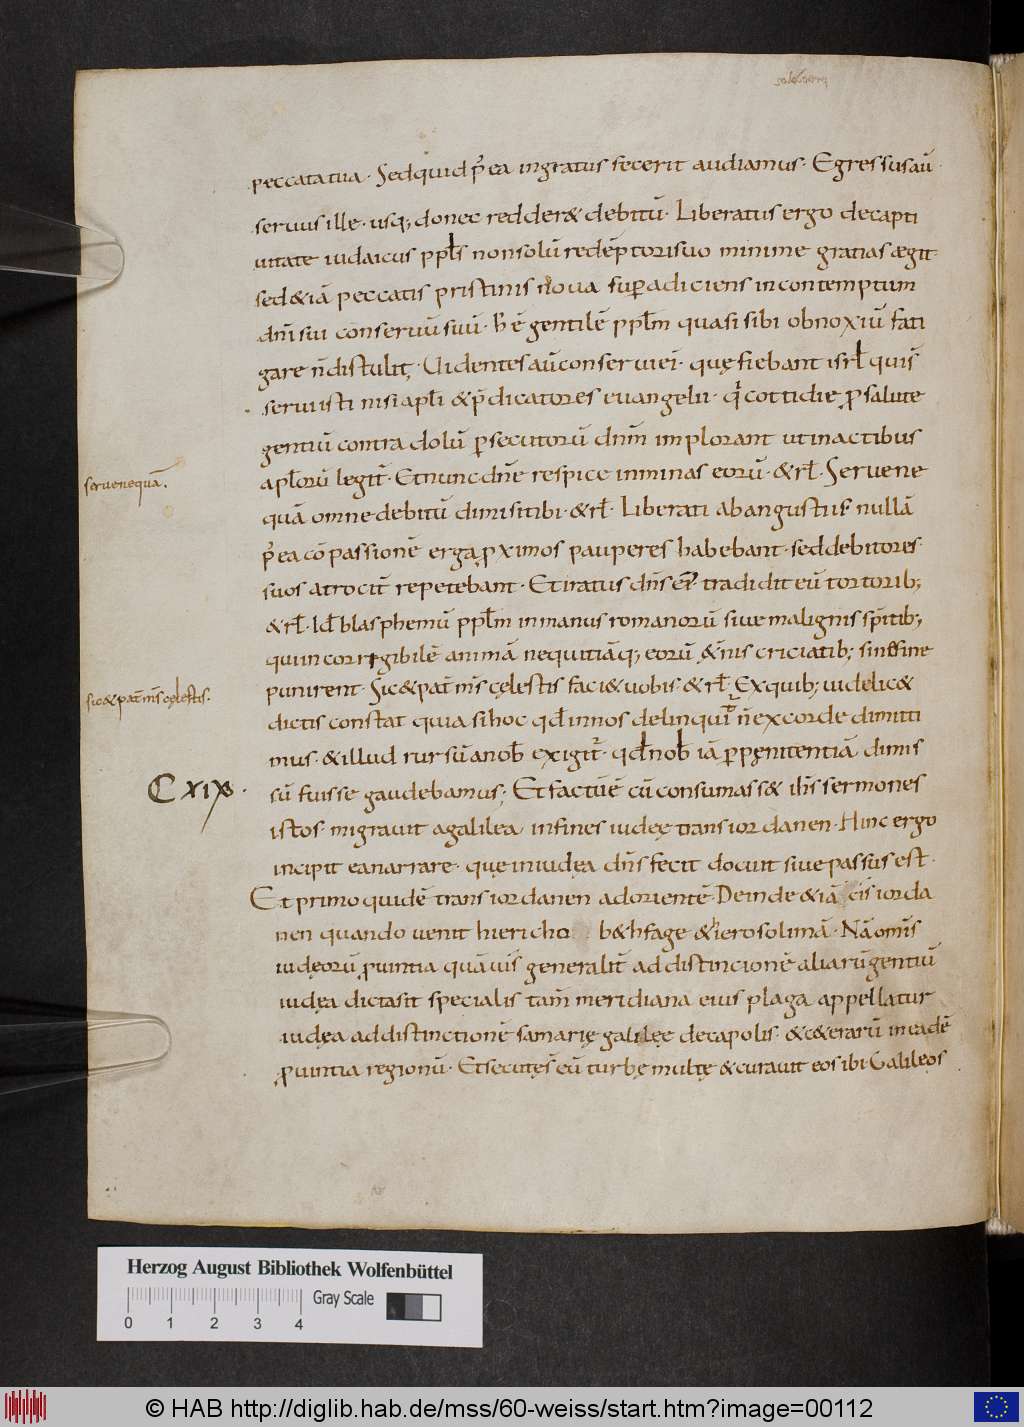 peccata tua. Sed quid p̄ ea ingratus fecerit audiamus. Egressus aū
seruus ille. usq; donec redder& debitū. Liberatus ergo de capti
uitate iudaicus ppl̄s non solū redēptori suo minime gratias ægit
sed & iā peccatis pristinis noua superadiciens in contemptum
dn̄i sui conseruū suū. h̄ ē gentilē ppl̄m quasi sibi obnoxiū fati
gare n̄ distulit; Uidentes aū conserui ei. quę fiebant isrl̄ quis
serui isti nisi apl̄i & p̄dicatores euangelii. qͥ cottidie ꝓ salute
gentiū contra dolū ꝑsecutorū dnm̄ implorant ut in actibus
apl̄orū legit̄. Et nunc dn̄e respice in minas eorū. & rl̄. Serue ne
quā omne debitū dimisi tibi. & rl̄. Liberati ab angustiis nullā
p̄ ea cōpassionē erga ꝓximos pauperes habebant. sed debitores
suos atrocit̄ repetebant. Et iratus dn̄s ei tradidit eū tortorib;
& rl̄. Id blasphemū ppl̄m in manus romanorū siue malignis sp̄itib;
qui incorrigibilē animā nequitiāq; eorū &n̄is cruciatib; sine fine
punirent. Sic & pat̄ m̄s cęlestis faci& uobis. & rl̄. Ex quib; uidelic&
dictis constat quia si hoc qd̄ in nos delinquit̄ n̄ ex corde dimitti
mus. & illud rursū a nob̄ exigit̄. qd̄ nob̄ iā ꝑ pęnitentiā dimis
sū fuisse gaudebamus; Et factū ē cū consumass& ih̄s sermones
istos. migrauit a galilea in fines iudeę trans iordanen. Hinc ergo
incipit ea narrare. quę in iudęa dn̄s fecit docuit siue passus est.
Et primo quidē trans iordanen ad orientē. Deinde & iā cis iorda
nen quando uenit hiericho b&hfage & hierosolimā. Nā om̄is
iudęorū ꝓuintia quāuis generalit̄ ad distincionē aliarū gentiū
iudęa dicta sit specialis tam̄ meridiana eius plaga appellatur
iudęa ad distinctionē samarię galilęe decapolis. & c&erarū in eadē
ꝓuintia regionū. Et secutęs̄ eū turbę multę & curauit eos ibi Galilęos
serue nequā.
sic & pat̄ m̄s cęlestis.
C xix.
Herzog August Bibliothek Wolfenbüttel
Gray Scale
0 1 2 3 4
© HAB http://diglib.hab.de/mss/60-weiss/start.htm?image=00112